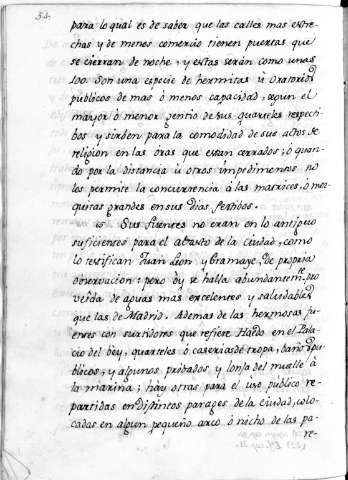 54.
para lo qual es de saber que las calles mas estre-
chas y de menos comercio tienen puertas que
se cierran de noche, y estas serán como unas
100. Son una especie de hermitas ú oratorios
públicos de mas ó menos capacidad, segun el
mayor ó menor gentio de sus quarteles respecti-
bos y sirben para la comodidad de sus actos de
religion en las oras que estan cerrados; ó quan-
do por la distancia ú otros impedimentos no
los permite la concurrencia á las matrices, ó mez-
quitas grandes en sus dias festibos.
15 Sus fuentes no eran en lo antiguo
suficientes para el abasto de la Ciudad, como
lo testifican Juan Leon y Gramaye, de propia
observacion: pero oy se halla abundantemte. pro
veida de aguas mas excelentes y saludables
que las de Madrid. Ademas de las hermosas fu-
entes con surtidores que refiere Haedo en el Pala-
cio del bey, quarteles ó caserias de tropa, baños pu-
blicos, y algunos probados y lonja del muelle á
la marina; hay otras para el uso público re-
partidas en distintos parages de la ciudad, colo-
cadas en algun pequeño arco ó nicho de las pa-
re-